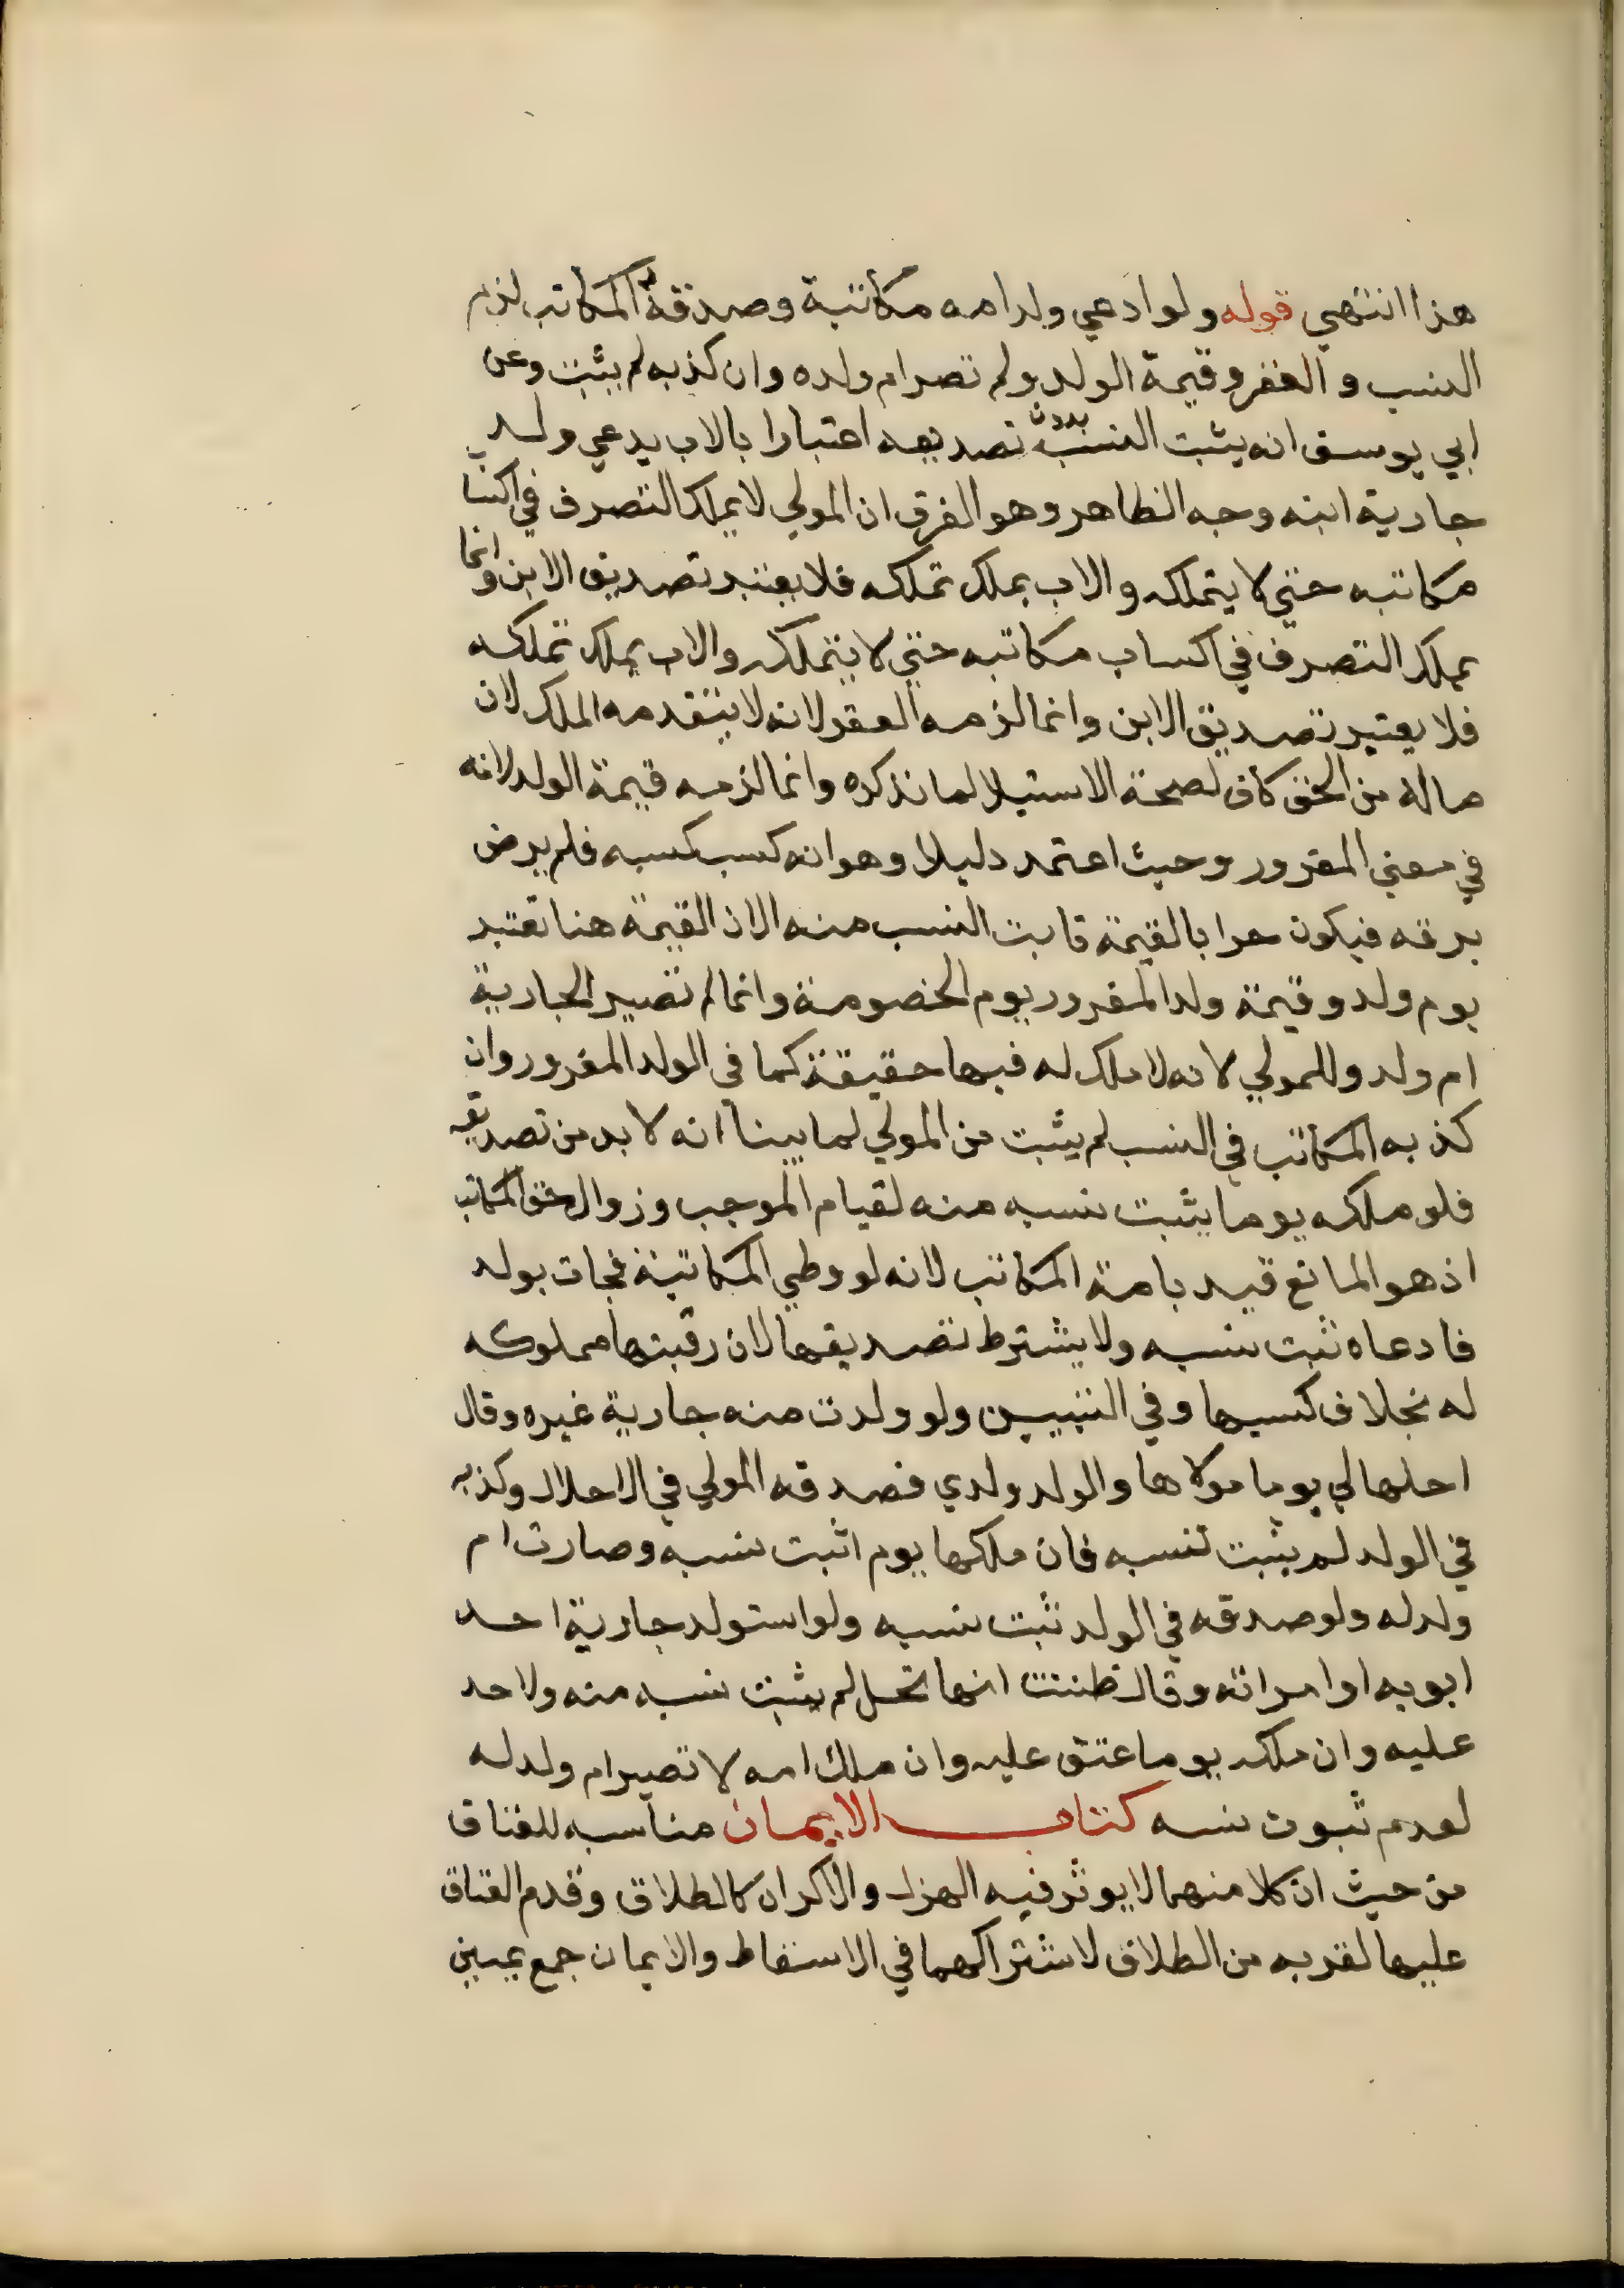 هذا انتهي قوله ولو ادعي ولد امه مكاتبة وصدقه المكاتب لزم
النسب والعقر وقيمة الولد ولم تصر ام ولده وان كذبه لم يثبت وعن
ابي يوسف انه يثبت النسب بدون تصديقه اعتبارا بالاب يدعي ولد
جارية ابنه وجه الظاهر وهو الفرق ان المولي لا يملك التصرف في اكسا
مكاتبه حتي لا يتملكه والاب يملك تملكه فلا يعتبر تصديق الابن وانما
يملك التصرف في اكساب مكاتبه حتي لا يتملكه والاب يملك تملكه
فلا يعتبر تصديق الابن وانما لزمه العقر لانه لا يتقدمه الملك لان
ماله من الحق كاف لصحة الاستيلا لما نذكره وانما لزمه قيمة الولد لانه
في معني المغرور وحيث اعتمد دليلا وهو انه كسب كسبه فلم يرض
برقه فيكون حرا بالقيمة ثابت النسب منه الا ان القيمة هنا تعتبر
يوم ولد وقيمة ولد المغرور يوم الخصومة وانما لم تصير الجارية
ام ولد وللمولي لانه لا ملك له فيها حقيقة كما في الولد المغرور وان
كذبه المكاتب في النسب لم يثبت من المولي لما بينا انه لا بد من تصديقه
فلو ملكه يوما يثبت نسبه منه لقيام الموجب وزوال حق المكاتب
اذ هو المانع قيد بامة المكاتب لانه لو وطي المكاتبة فجات بولد
فادعاه ثبت نسبه ولا يشترط تصديقها لان رقبتها مملوكه
له بخلاف كسبها وفي التبيين ولو ولدت منه جارية غيره وقال
احلها لي يوما مولاها والولد ولدي فصدقه المولي في الاحلال وكذبه
في الولد لم يثبت نسبه فان ملكها يوم اثبت نسبه وصارت ام
ولد له ولو صدقه في الولد ثبت نسبه ولو استولد جارية احد
ابويه او امراته وقال ظننت انها تحل لم يثبت نسبه منه ولا حد
عليه وان ملكه يوما عتق عليه وان ملك امه لا تصير ام ولد له
لعدم ثبوت نسبه كتاب الايمان مناسبه للعتاق
من حيث ان كلا منهما لا يوثر فيه الهزل والاكراه كالطلاق وقدم العتاق
عليها لقربه من الطلاق لاشتراكهما في الاسقاط والايمان جمع يمين